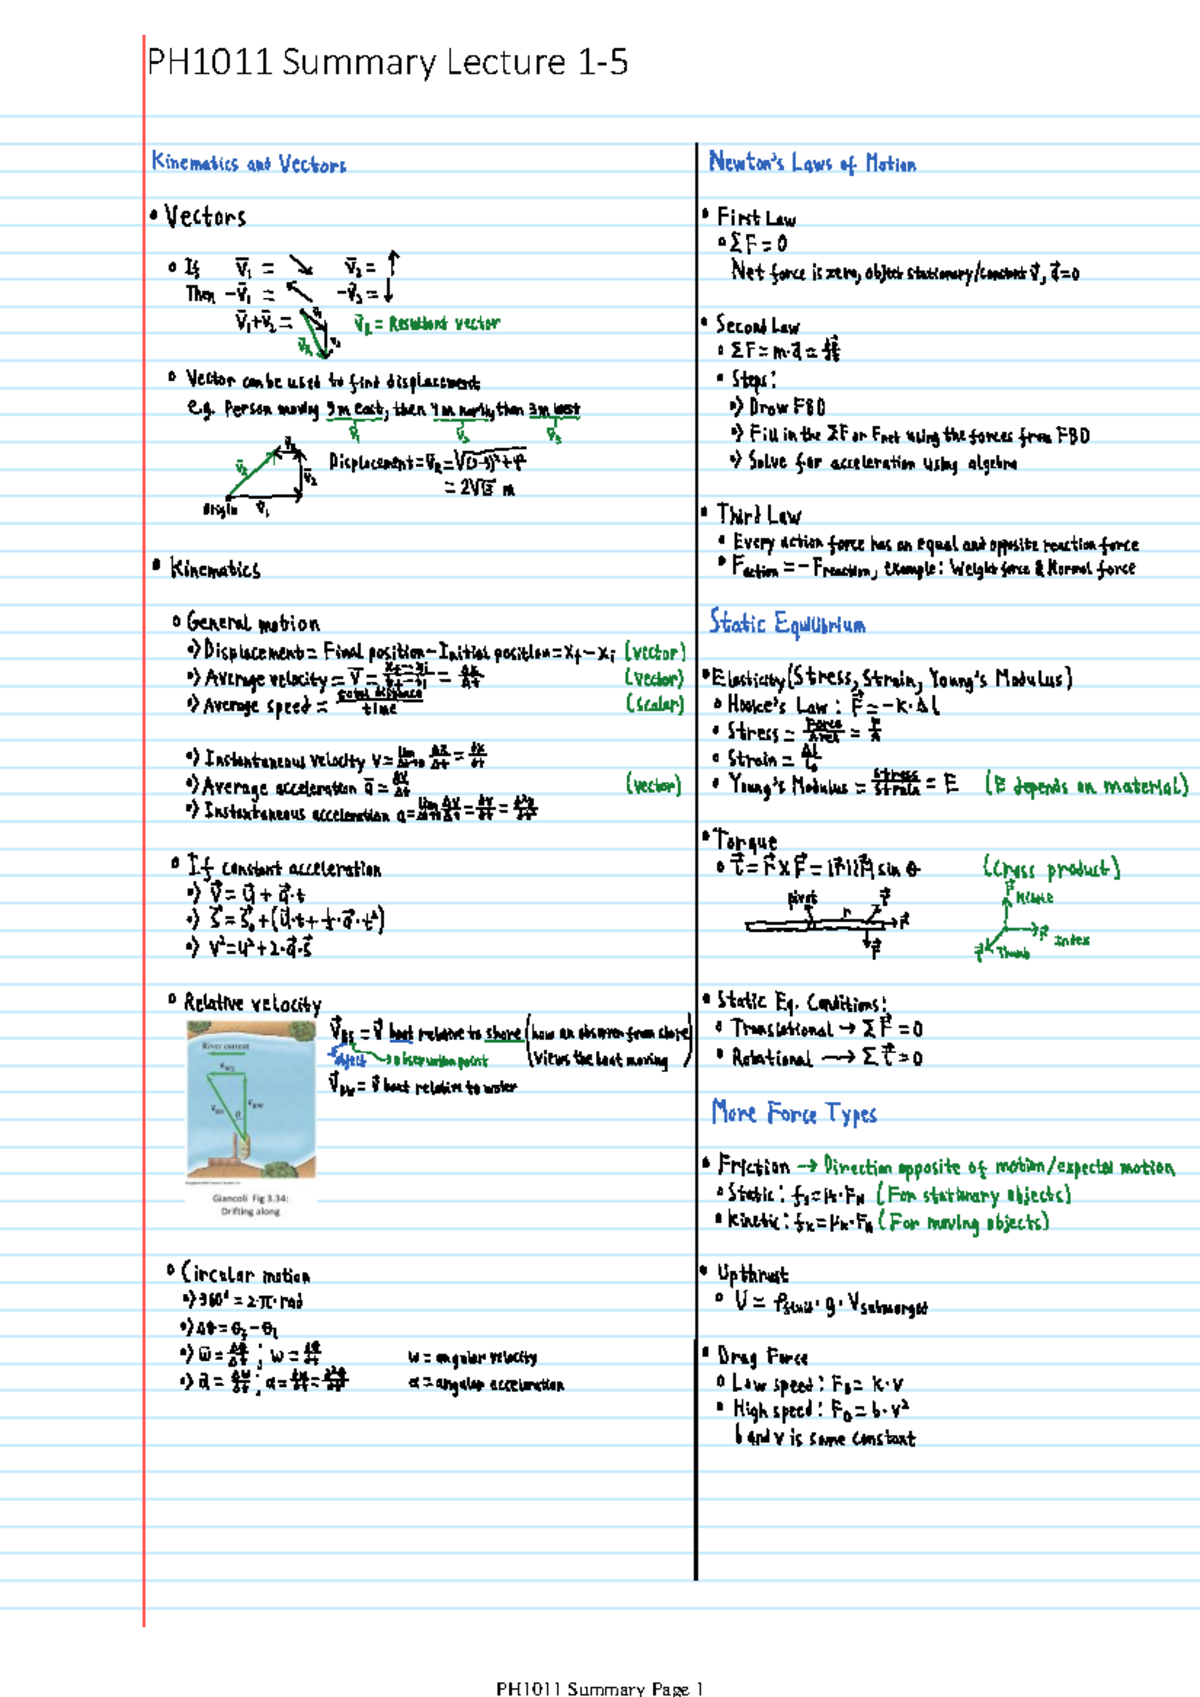 PH1011 Summary Lecture 1-5
Kinematics and Vectors
• Vectors
o If V̄₁ = ↘ V̄₂ = ↑
Then -V̄₁ = ↖ -V̄₂ = ↓
V̄₁+V̄₂ = V̄R = Resultant vector
o Vector can be used to find displacement
e.g. Person moving 5m east, then 4m north, then 3m west
V̄₁ V̄₂ V̄₃
Displacement = V̄R = √(5-3)²+4²
= 2√5 m
origin V̄₁
• Kinematics
o General motion
•> Displacement = Final position - Initial position = xf - xi (vector)
•> Average velocity = V̄ = xf - xi / tf - ti = Δx/Δt (vector)
•> Average speed = total distance / time (scalar)
•> Instantaneous velocity v = lim Δt→0 Δx/Δt = dx/dt
•> Average acceleration ā = Δv/Δt (vector)
•> Instantaneous acceleration a = lim Δt→0 Δv/Δt = dv/dt = d²x/dt²
o If constant acceleration
•> V⃗ = U⃗ + a⃗·t
•> S⃗ = S⃗₀ + (U⃗·t + ½·a⃗·t²)
•> V² = U² + 2·a⃗·s⃗
o Relative velocity
River current
V⃗BS = V⃗ boat relative to shore (how an observer from shore
object → observation point views the boat moving)
V⃗BW = V⃗ boat relative to water
Giancoli Fig 3.34:
Drifting along
o Circular motion
•> 360° = 2·π·rad
•> Δθ = θ₂ - θ₁
•> ω̄ = Δθ/Δt ; ω = dθ/dt ω = angular velocity
•> ᾱ = Δω/Δt ; α = dω/dt = d²θ/dt² α = angular acceleration
Newton's Laws of Motion
• First Law
o ΣF = 0
Net force is zero, object stationary/constant V⃗, a⃗=0
• Second Law
o ΣF = m·a⃗ =
• Steps:
•> Draw FBD
•> Fill in the ΣF or Fnet using the forces from FBD
•> Solve for acceleration using algebra
• Third Law
• Every action force has an equal and opposite reaction force
• Faction = -Freaction, example: Weight force & Normal force
Static Equilibrium
• Elasticity (Stress, Strain, Young's Modulus)
o Hooke's Law: F⃗ = -k·ΔL
• Stress = Force/Area = F/A
• Strain = ΔL/L₀
• Young's Modulus = Stress/Strain = E (E depends on material)
• Torque
o τ⃗ = r⃗ x F⃗ = |r⃗||F⃗| sin θ (Cross product)
pivot r F⃗ F⃗ F⃗
Middle
Index
Thumb
• Static Eq. Conditions:
• Translational → ΣF⃗ = 0
• Rotational → Στ⃗ = 0
More Force Types
• Friction → Direction opposite of motion/expected motion
o Static: fs = μ·FN (For stationary objects)
• kinetic: fk = μk·FN (For moving objects)
• Upthrust
o U = ρfluid·g·Vsubmerged
• Drag Force
o Low speed: FD = k·v
• High speed: FD = b·v²
b and v is some constant
PH1011 Summary Page 1